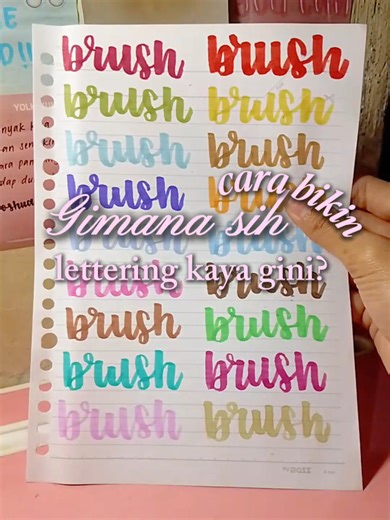 brush brush
brush brush
brush brush
brush
cara bikin
Gimana sih
brush brush
lettering kaya gini?
brush brush
brush brush
brush brush
brush brush